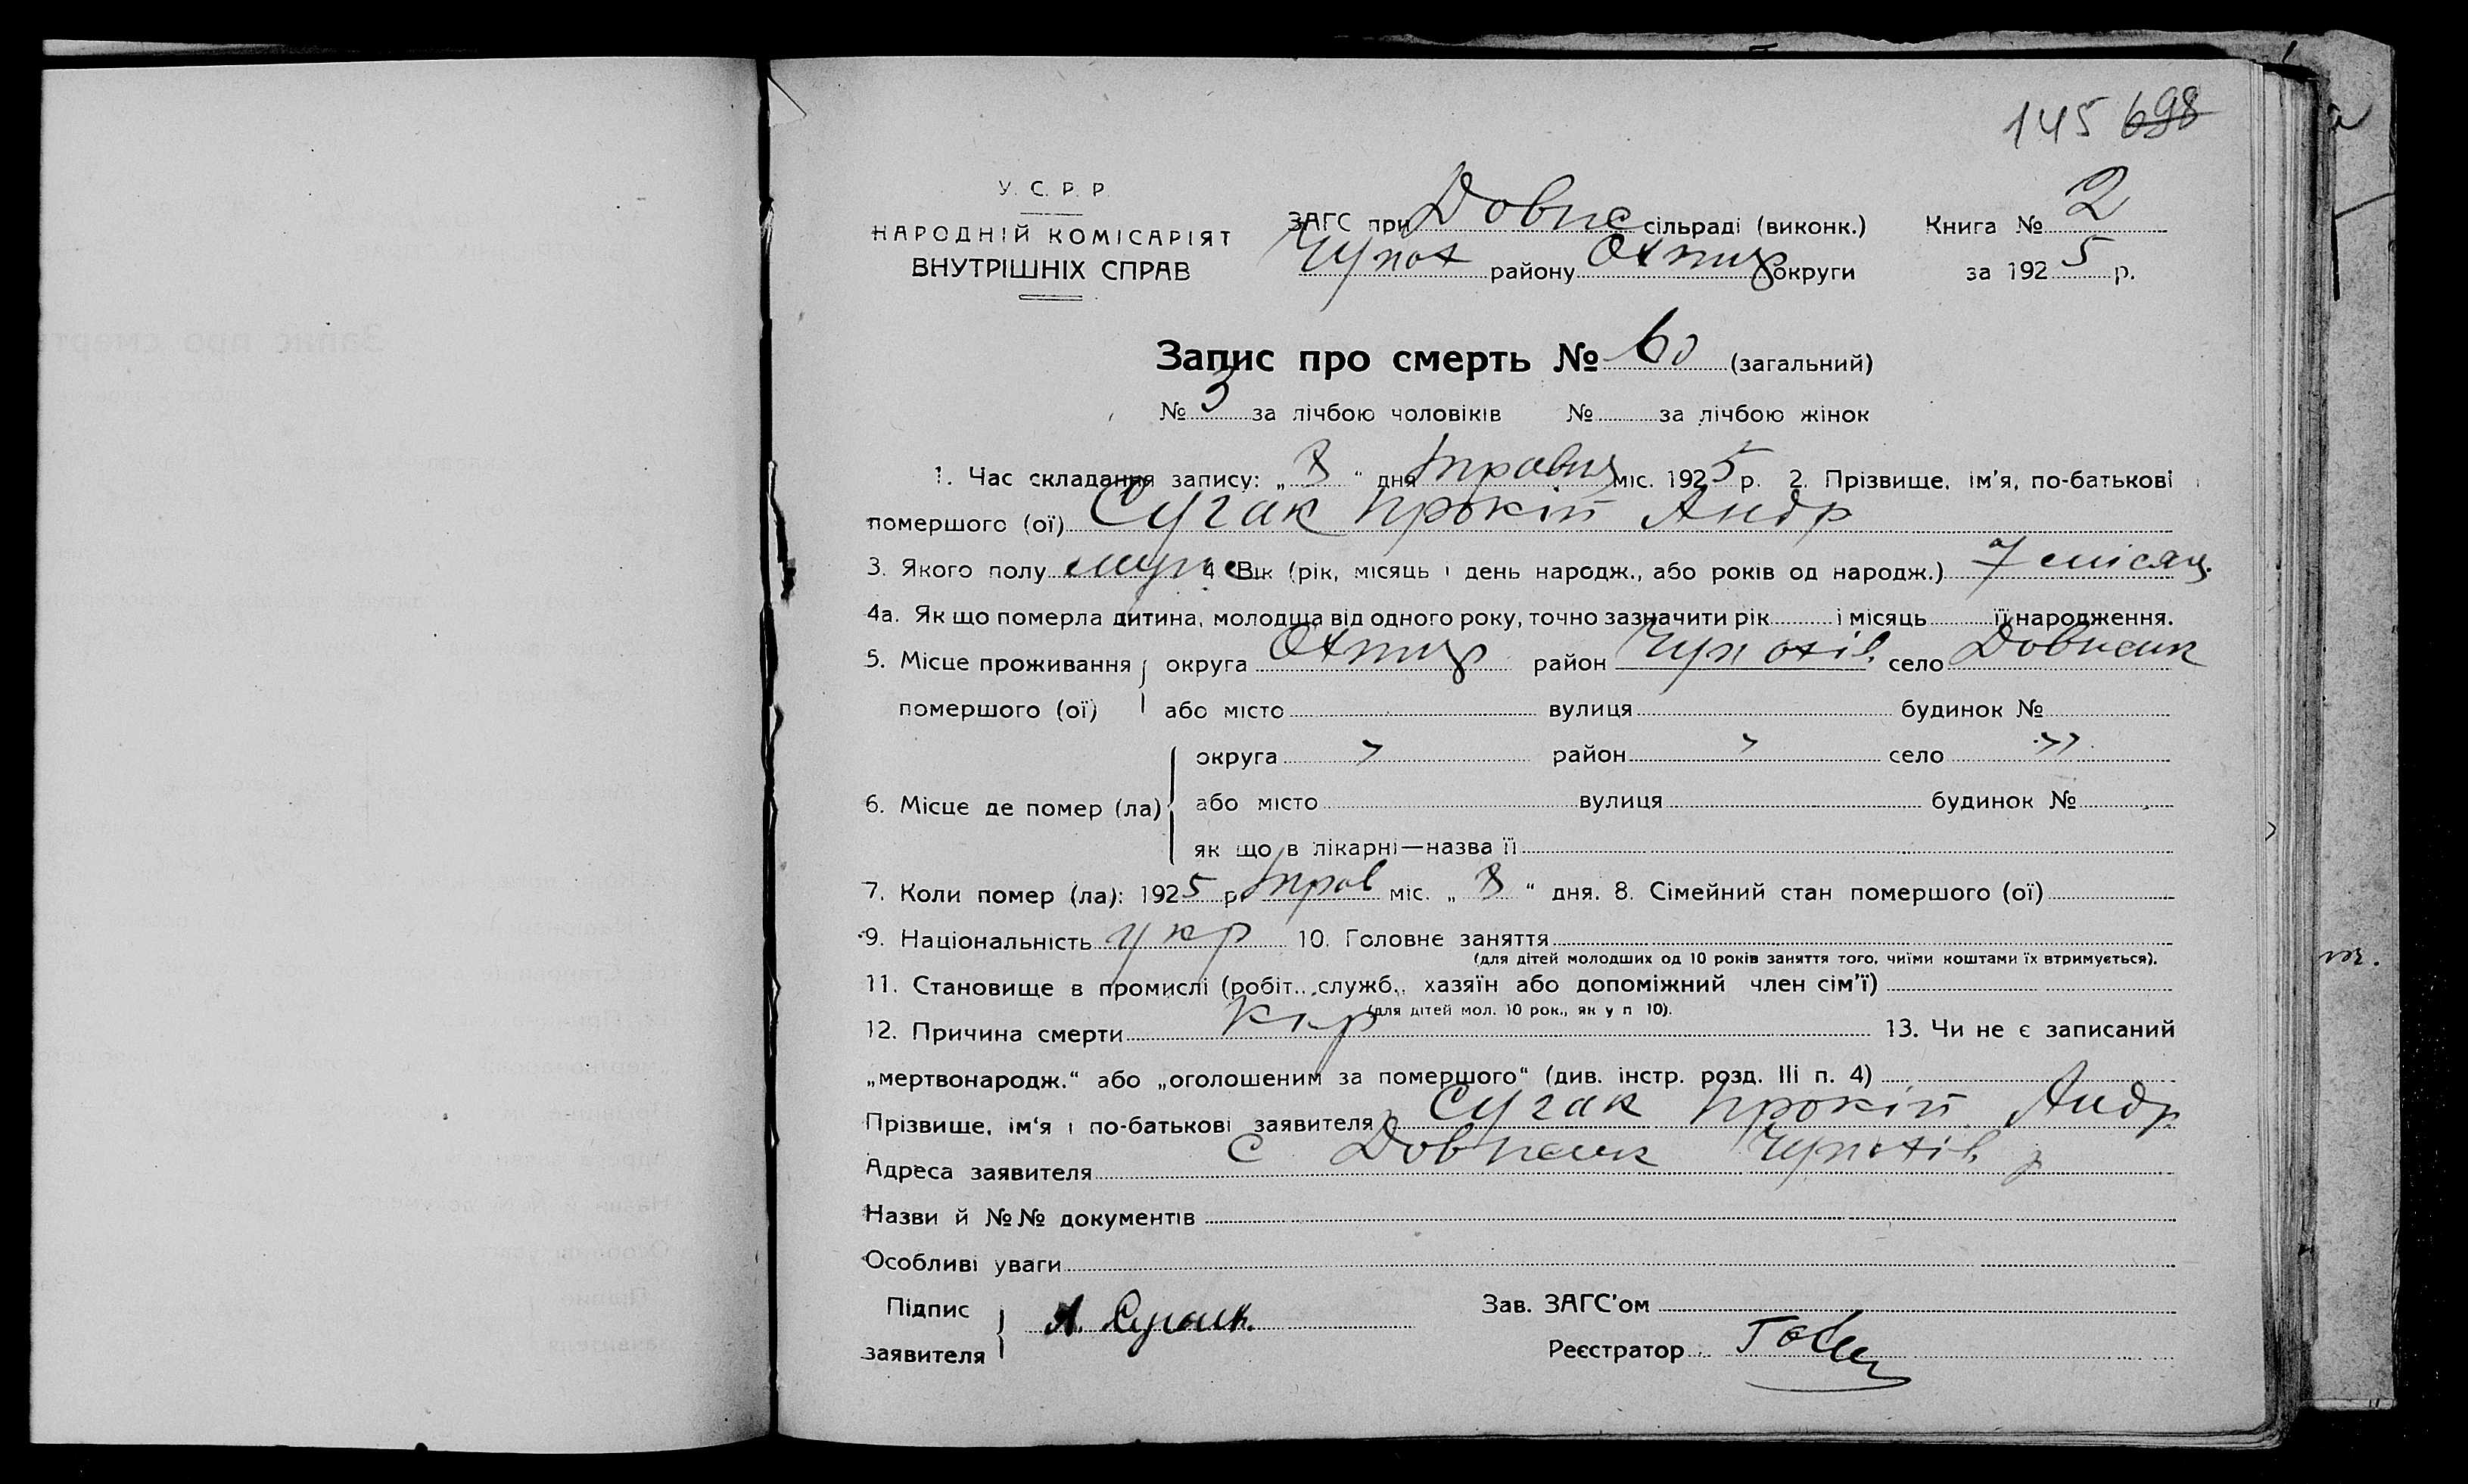 145 698
У. С. Р. Р.
НАРОДНІЙ КОМІСАРІЯТ
ВНУТРІШНІХ СПРАВ
ЗАГС при Довпс сільраді (виконк.) Книга № 2
Чупах району Охтир округи за 1925 р.
Запис про смерть № 60 (загальний)
№ 3 за лічбою чоловіків № за лічбою жінок
1. Час складання запису: „ 8 “ дня Травня міс. 1925 р. 2. Прізвище, ім'я, по-батькові
помершого (ої) Сугак Прокіп Андр
3. Якого полу муж 4 Вік (рік, місяць і день народж., або років од народж.) 7 місяц.
4а. Як що померла дитина, молодща від одного року, точно зазначити рік і місяць її народження.
5. Місце проживання округа Охтир район Чупахів. село
помершого (ої) або місто вулиця будинок №
округа район село
6. Місце де помер (ла) або місто вулиця будинок №
як що в лікарні—назва її
7. Коли помер (ла): 1925 р. трав міс. „ 8 “ дня. 8. Сімейний стан помершого (ої)
9. Національність укр 10. Головне заняття
(для дітей молодших од 10 років заняття того, чиїми коштами їх втримується).
11. Становище в промислі (робіт., служб., хазяїн або допоміжний член сім'ї)
(для дітей мол. 10 рок., як у п 10).
12. Причина смерти кір 13. Чи не є записаний
„мертвонародж.“ або „оголошеним за помершого“ (див. інстр. розд. III п. 4)
Прізвище, ім'я і по-батькові заявителя Сугак Прокіп Андр
Адреса заявителя с Чупахів р
Назви й №№ документів
Особливі уваги
Підпис Зав. ЗАГС'ом
заявителя А. Сугак. Реєстратор